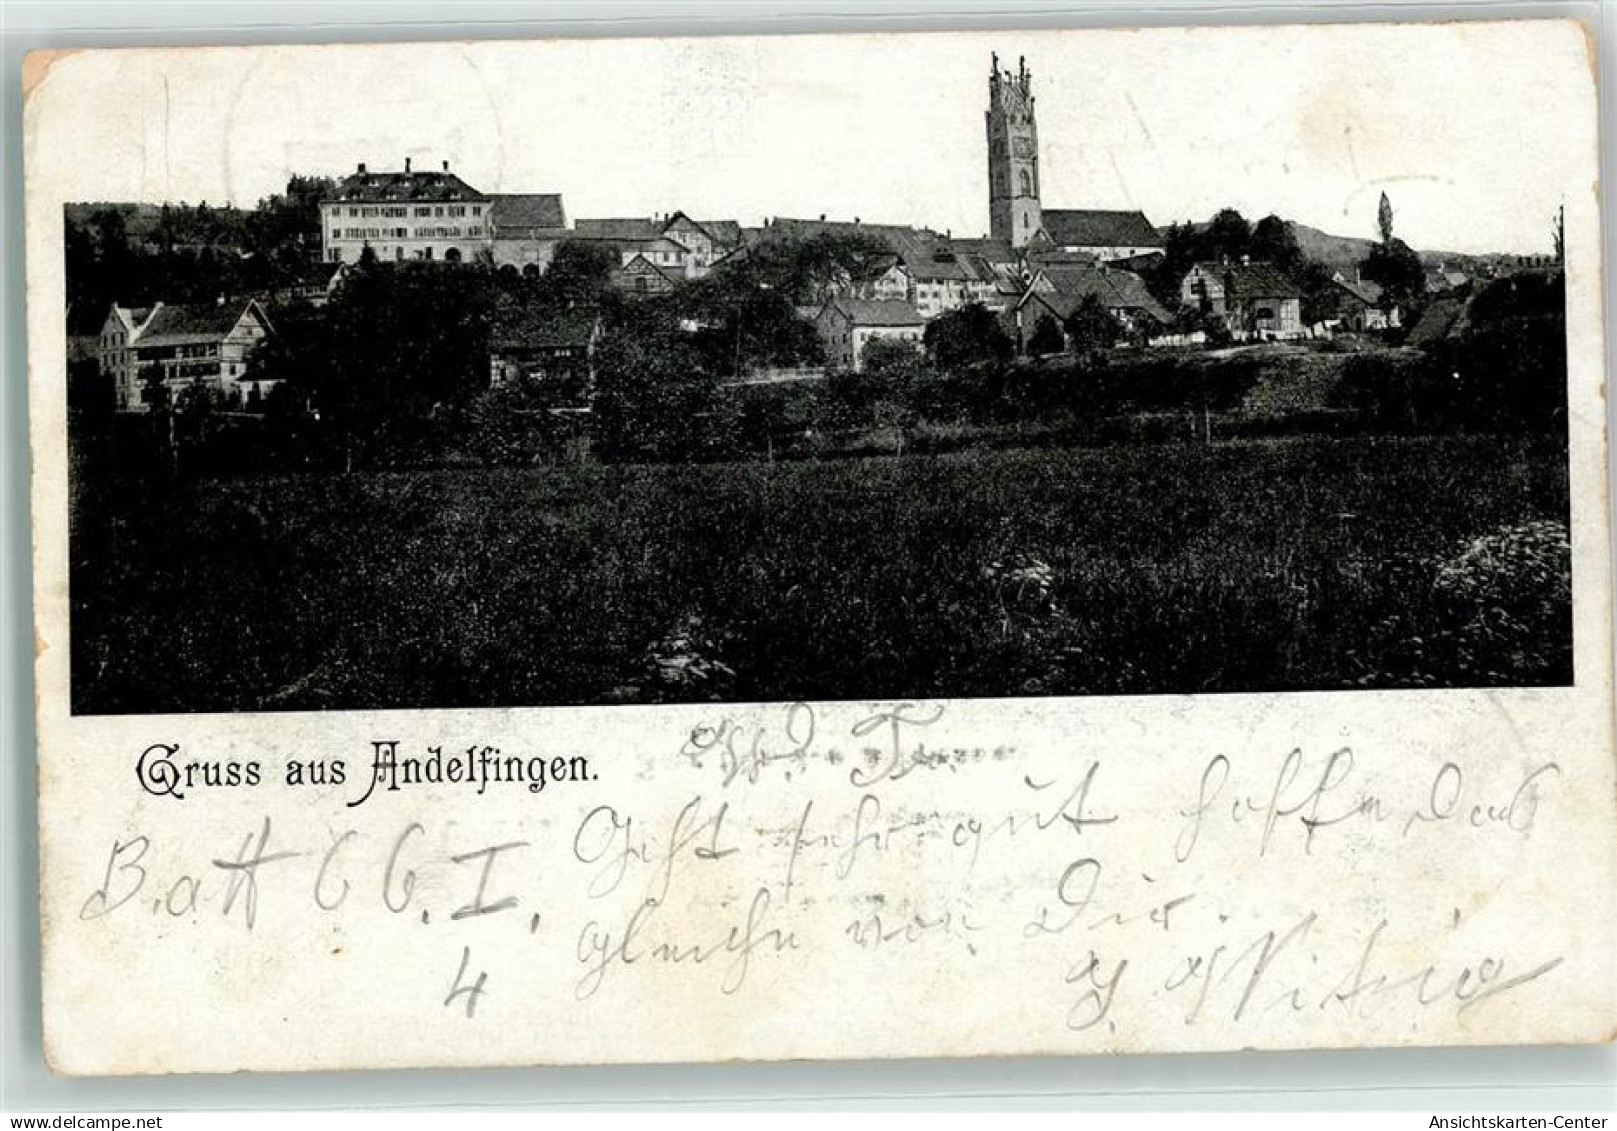 Gruss aus Andelfingen.
Batt 66. I.
4
Geht sehr gut hoffe das
gleiche von Dir.
oldthing.de
Ansichtskarten-Center